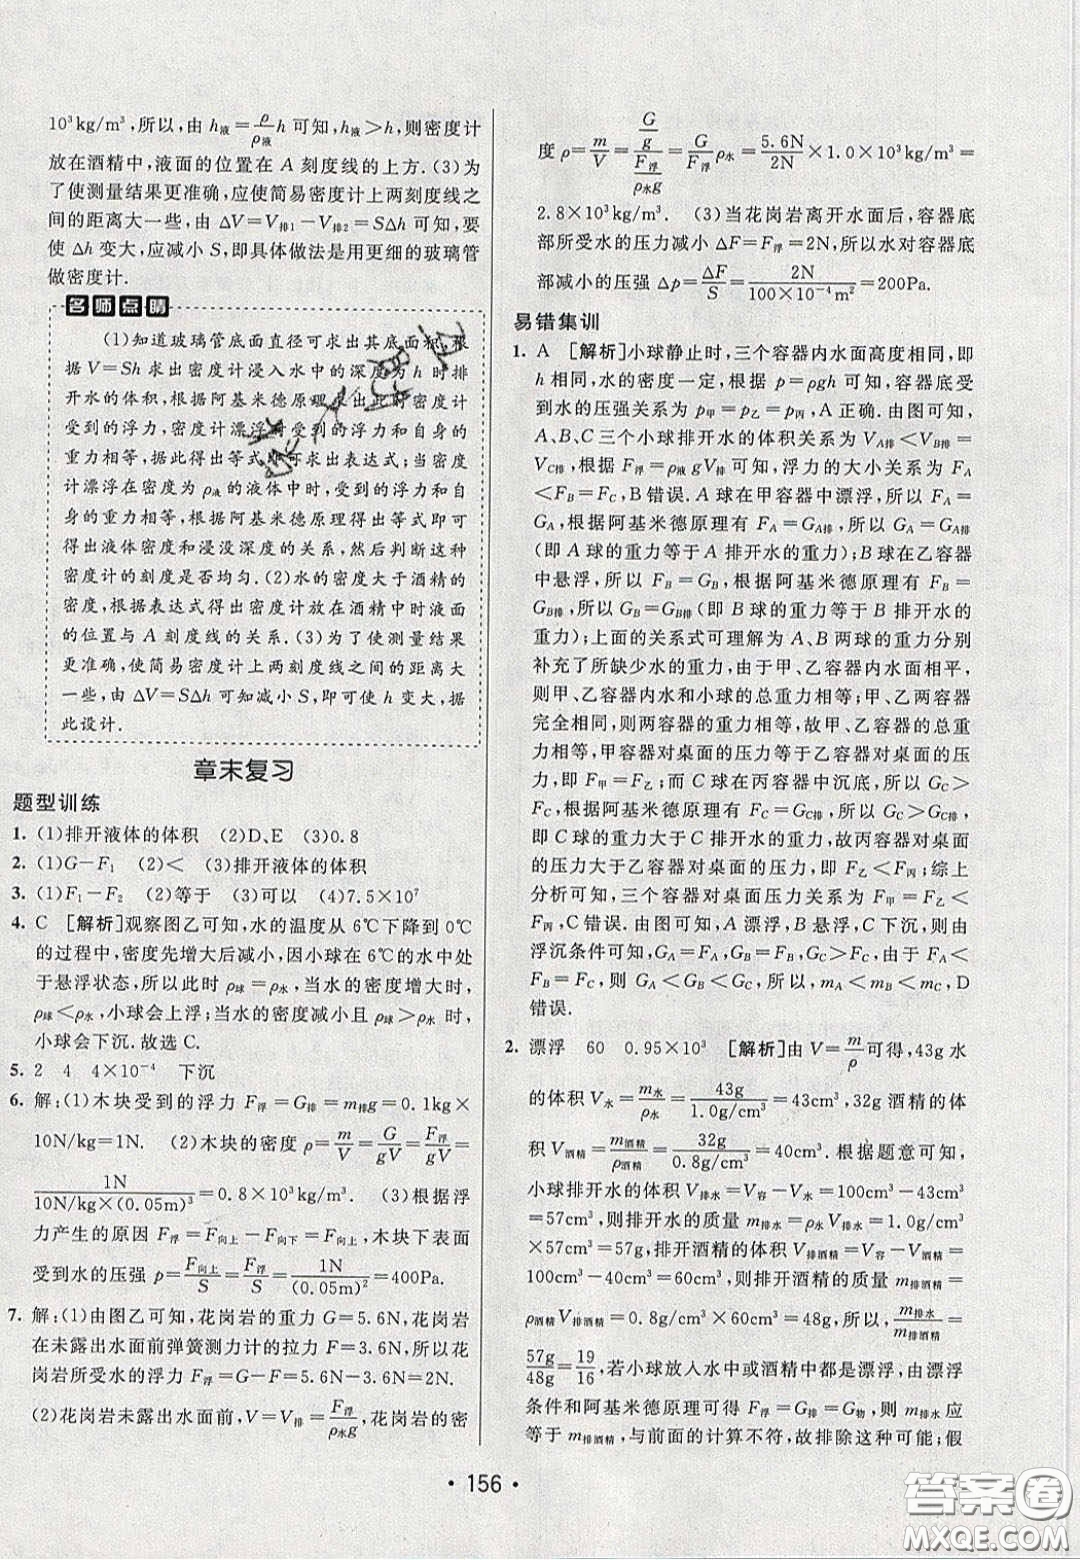 10³kg/m³,所以,由 h液=ρ/ρ液 h 可知,h液>h,则密度计
放在酒精中,液面的位置在 A 刻度线的上方. (3)为
了使测量结果更准确,应使简易密度计上两刻度线之
间的距离大一些,由 ΔV=V排1-V排2=SΔh 可知,要
使 Δh 变大,应减小 S,即具体做法是用更细的玻璃管
做密度计.
名师点睛
(1)知道玻璃管底面直径可求出其底面积,根
据 V=Sh 求出密度计浸入水中的深度为 h 时排
开水的体积,根据阿基米德原理求出此时密度计
受到的浮力,密度计漂浮时受到的浮力和自身的
重力相等,据此得出等式即可求出表达式;当密度
计漂浮在密度为 ρ液 的液体中时,受到的浮力和自
身的重力相等,根据阿基米德原理得出等式即可
得出液体密度和浸没深度的关系,然后判断这种
密度计的刻度是否均匀. (2)水的密度大于酒精的
密度,根据表达式得出密度计放在酒精中时液面
的位置与 A 刻度线的关系. (3)为了使测量结果
更准确,使简易密度计上两刻度线之间的距离大
一些,由 ΔV=SΔh 可知减小 S,可使 h 变大,据
此设计.
章末复习
题型训练
1. (1)排开液体的体积 (2)D、E (3)0.8
2. (1)G-F₁ (2)< (3)排开液体的体积
3. (1)F₁-F₂ (2)等于 (3)可以 (4)7.5×10⁷
4. C [解析]观察图乙可知,水的温度从 6℃下降到 0℃
的过程中,密度先增大后减小,因小球在 6℃的水中处
于悬浮状态,所以此时 ρ球=ρ水,当水的密度增大时,
ρ球<ρ水,小球会上浮;当水的密度减小且 ρ球>ρ水 时,
小球会下沉.故选 C.
5. 2 4 4×10⁻⁴ 下沉
6. 解:(1)木块受到的浮力 F浮=G排=m排g=0.1kg×
10N/kg=1N. (2)木块的密度 ρ=m/V=G/gV=F浮/gV=
1N/10N/kg×(0.05m)³=0.8×10³kg/m³. (3)根据浮
力产生的原因 F浮=F向上-F向下=F向上,木块下表面
受到水的压强 p=F向上/S=F浮/S=1N/(0.05m)²=400Pa.
7. 解:(1)由图乙可知,花岗岩的重力 G=5.6N,花岗岩
在未露出水面前弹簧测力计的拉力 F=3.6N,所以花
岗岩所受水的浮力 F浮=G-F=5.6N-3.6N=2N.
(2)花岗岩未露出水面前,V=V排=F浮/ρ水g,花岗岩的密
度 ρ=m/V=(G/g)/(F浮/ρ水g)=G/F浮 ρ水=5.6N/2N×1.0×10³kg/m³=
2.8×10³kg/m³. (3)当花岗岩离开水面后,容器底
部所受水的压力减小 ΔF=F浮=2N,所以水对容器底
部减小的压强 Δp=ΔF/S=2N/100×10⁻⁴m²=200Pa.
易错集训
1. A [解析]小球静止时,三个容器内水面高度相同,即
h 相同,水的密度一定,根据 p=ρgh 可知,容器底受
到水的压强关系为 p甲=p乙=p丙,A 正确. 由图知,
A、B、C 三个小球排开水的体积关系为 VA排<VB排=
VC排,根据 F浮=ρ液gV排可知,浮力的大小关系为 FA
<FB=FC,B 错误. A 球在甲容器中漂浮,所以 FA=
GA,根据阿基米德原理有 FA=GA排,所以 GA=GA排
(即 A 球的重力等于 A 排开水的重力);B 球在乙容器
中悬浮,所以 FB=GB,根据阿基米德原理有 FB=
GB排,所以 GB=GB排(即 B 球的重力等于 B 排开水的
重力);上面的关系式可理解为 A、B 两球的重力分别
补充了所缺少水的重力,由于甲、乙容器内水面相平,
则甲、乙容器内水和小球的总重力相等;甲、乙两容器
完全相同,则两容器的重力相等,故甲、乙容器的总重
力相等,甲容器对桌面的压力等于乙容器对桌面的压
力,即 F甲=F乙;而 C 球在丙容器中沉底,所以 GC>
FC,根据阿基米德原理有 FC=GC排,所以 GC>GC排,
即 C 球的重力大于 C 排开水的重力,故丙容器对桌面
的压力大于乙容器对桌面的压力,即 F乙<F丙;综上
分析可知,三个容器对桌面压力关系为 F甲=F乙<
F丙,C 错误. 由图可知,A 漂浮,B 悬浮,C 下沉,由
浮沉条件可知,GA=FA,GB=FB,GC>FC,由于 FA<
FB=FC,所以,则 GA<GB<GC,所以,mA<mB<mC,D
错误.
2. 漂浮 60 0.95×10³ [解析]由 V=m/ρ可得,43g 水
的体积 V水=m水/ρ水=43g/1.0g/cm³=43cm³,32g 酒精的体
积 V酒精=m酒精/ρ酒精=32g/0.8g/cm³=40cm³. 根据题意可知,
小球排开水的体积 V排水=V容-V水=100cm³-43cm³
=57cm³,则排开水的质量 m排水=ρ水V排水=1.0g/cm³
×57cm³=57g,排开酒精的体积 V排酒精=V容-V酒精=
100cm³-40cm³=60cm³,则排开酒精的质量 m排酒精=
ρ酒精V排酒精=0.8g/cm³×60cm³=48g,所以,m排水/m排酒精=
57g/48g=19/16,若小球放入水中或酒精中都是漂浮,由漂浮
条件和阿基米德原理可得 F浮=G排=G物,则 m排水 应
等于 m排酒精,与前面的计算不符,故排除这种可能;假
• 156 •
答案圈
MXQE.COM